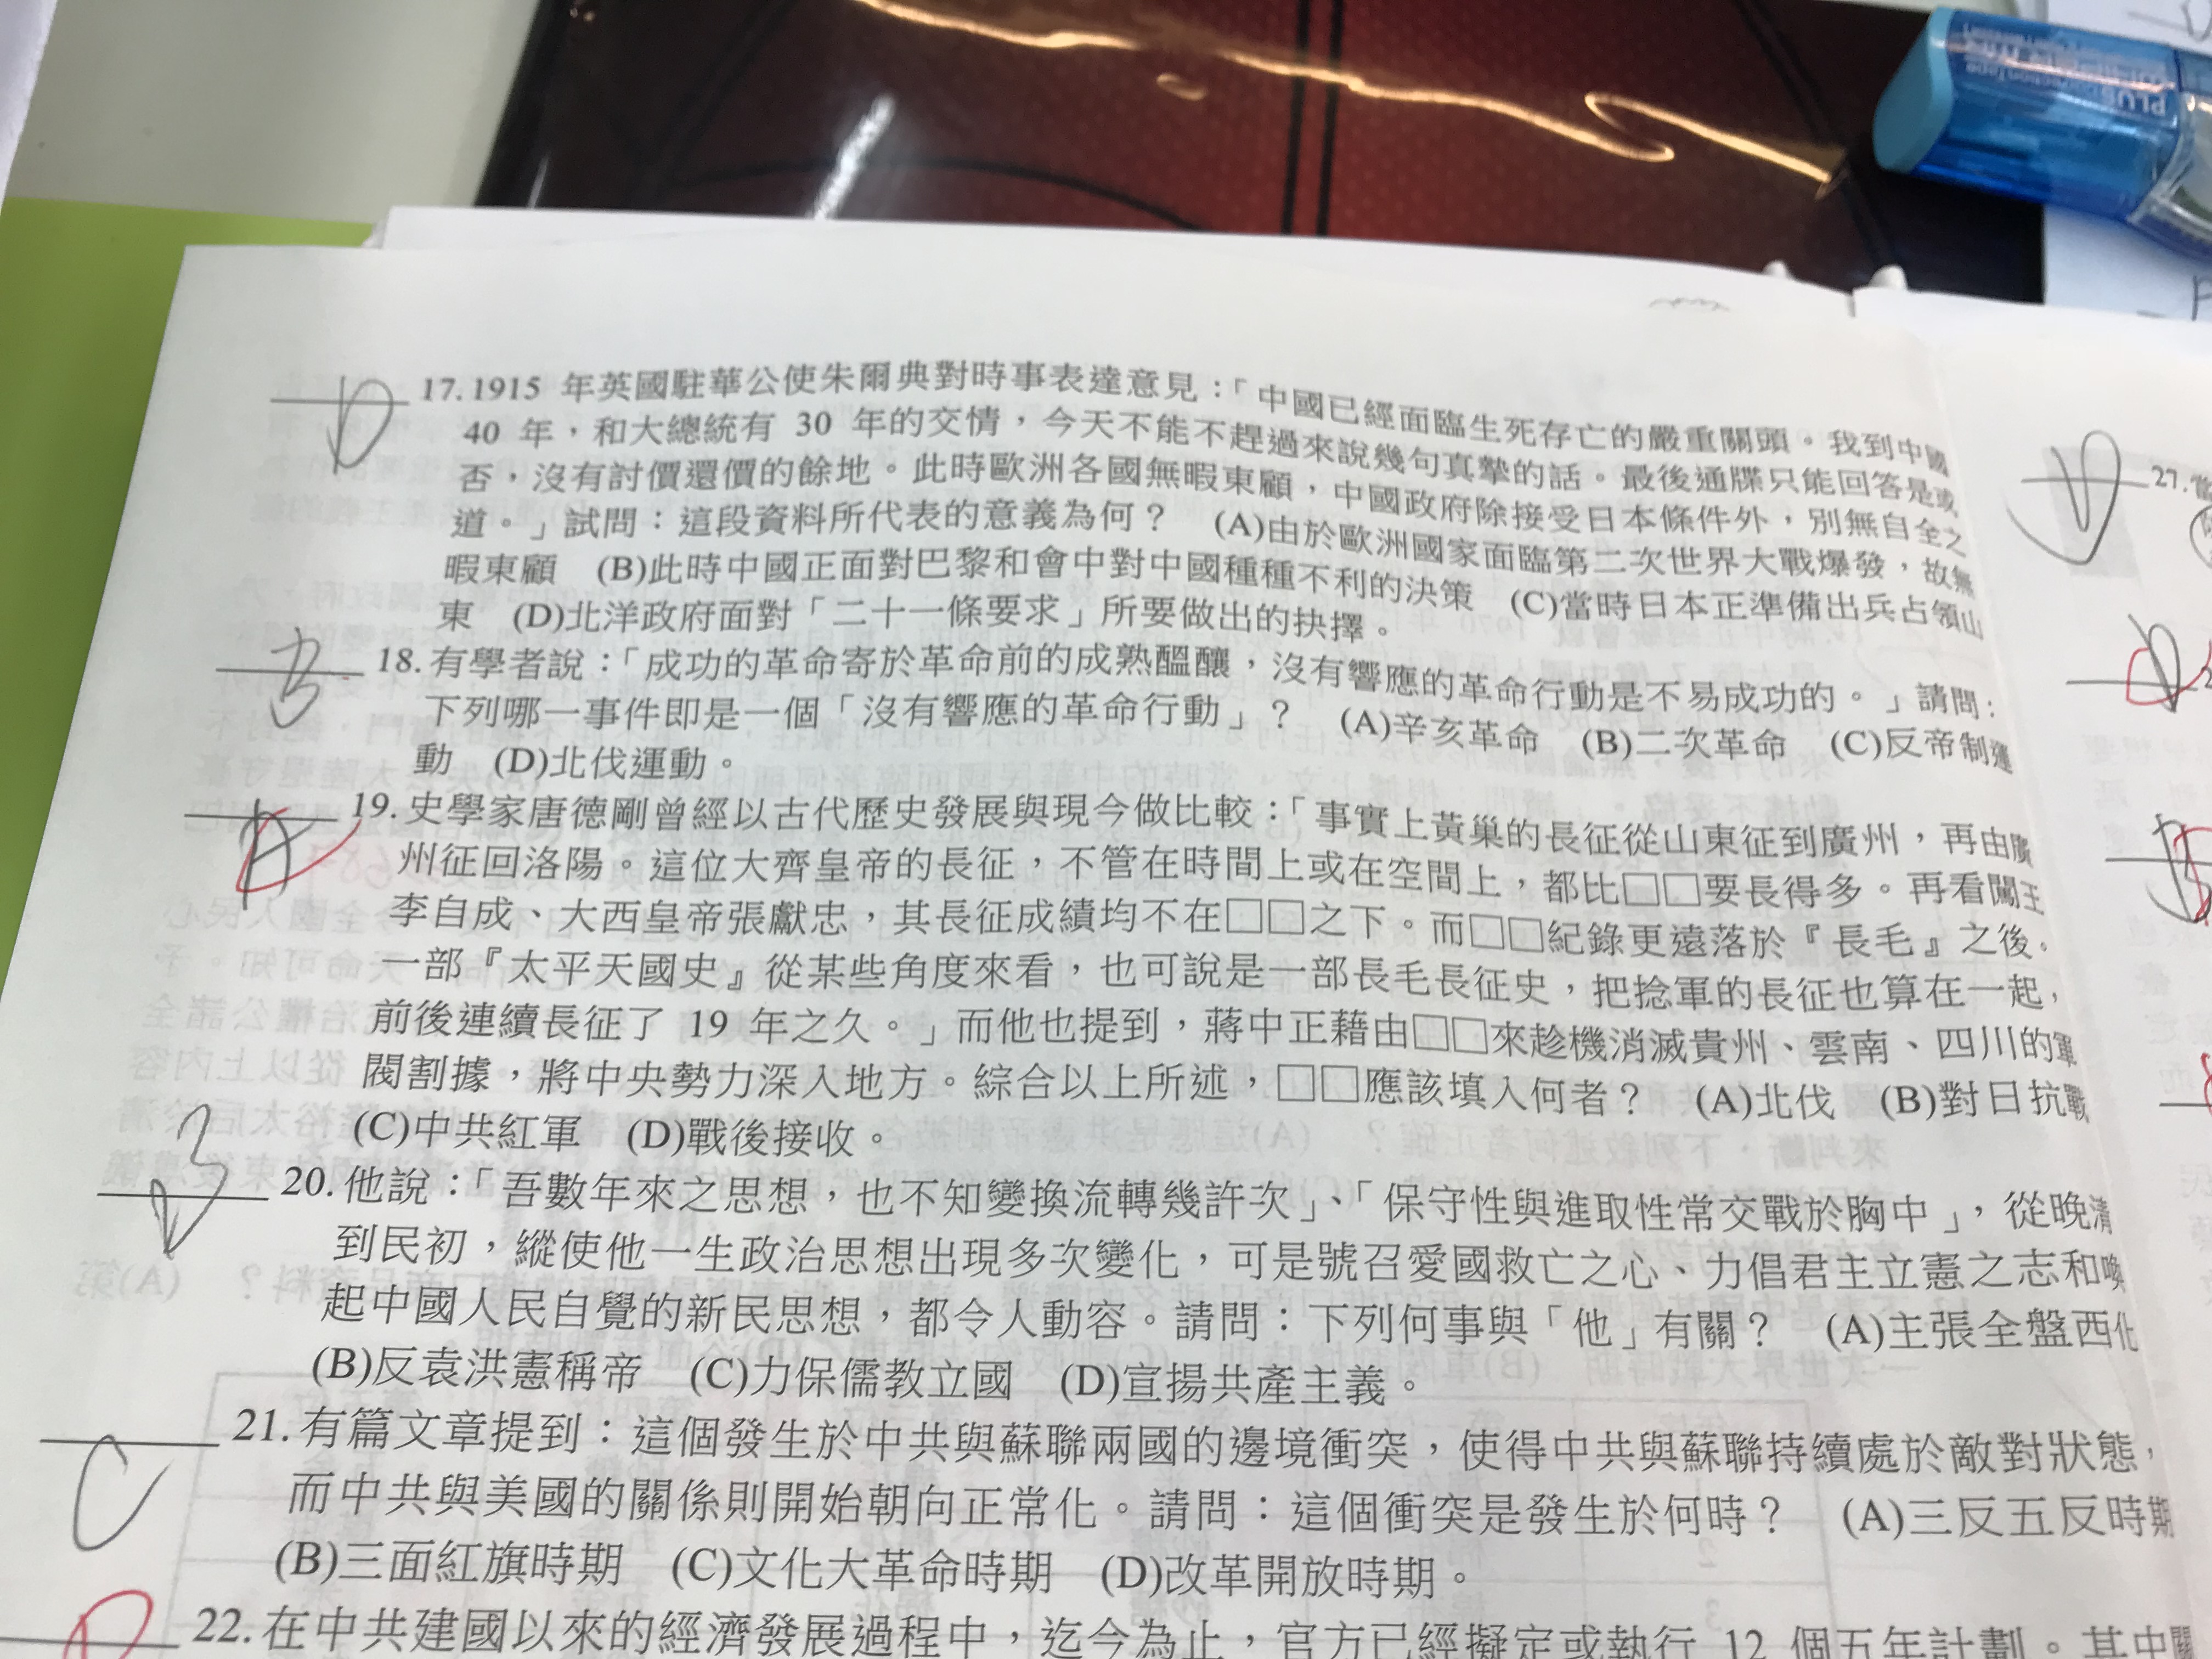 PLUS
D 17. 1915 年英國駐華公使朱爾典對時事表達意見：「中國已經面臨生死存亡的嚴重關頭。我到中國
40 年，和大總統有 30 年的交情，今天不能不趕過來說幾句真摯的話。最後通牒只能回答是或
否，沒有討價還價的餘地。此時歐洲各國無暇東顧，中國政府除接受日本條件外，別無自全之
道。」試問：這段資料所代表的意義為何？ (A)由於歐洲國家面臨第二次世界大戰爆發，故無
暇東顧 (B)此時中國正面對巴黎和會中對中國種種不利的決策 (C)當時日本正準備出兵占領山
東 (D)北洋政府面對「二十一條要求」所要做出的抉擇。
B 18. 有學者說：「成功的革命寄於革命前的成熟醞釀，沒有響應的革命行動是不易成功的。」請問：
下列哪一事件即是一個「沒有響應的革命行動」？ (A)辛亥革命 (B)二次革命 (C)反帝制運
動 (D)北伐運動。
A 19. 史學家唐德剛曾經以古代歷史發展與現今做比較：「事實上黃巢的長征從山東征到廣州，再由廣
州征回洛陽。這位大齊皇帝的長征，不管在時間上或在空間上，都比□□要長得多。再看闖王
李自成、大西皇帝張獻忠，其長征成績均不在□□之下。而□□紀錄更遠落於『長毛』之後。
一部『太平天國史』從某些角度來看，也可說是一部長毛長征史，把捻軍的長征也算在一起，
前後連續長征了 19 年之久。」而他也提到，蔣中正藉由□□來趁機消滅貴州、雲南、四川的軍
閥割據，將中央勢力深入地方。綜合以上所述，□□應該填入何者？ (A)北伐 (B)對日抗戰
(C)中共紅軍 (D)戰後接收。
B 20. 他說：「吾數年來之思想，也不知變換流轉幾許次」、「保守性與進取性常交戰於胸中」，從晚清
到民初，縱使他一生政治思想出現多次變化，可是號召愛國救亡之心、力倡君主立憲之志和喚
起中國人民自覺的新民思想，都令人動容。請問：下列何事與「他」有關？ (A)主張全盤西化
(B)反袁洪憲稱帝 (C)力保儒教立國 (D)宣揚共產主義。
C 21. 有篇文章提到：這個發生於中共與蘇聯兩國的邊境衝突，使得中共與蘇聯持續處於敵對狀態，
而中共與美國的關係則開始朝向正常化。請問：這個衝突是發生於何時？ (A)三反五反時期
(B)三面紅旗時期 (C)文化大革命時期 (D)改革開放時期。
22. 在中共建國以來的經濟發展過程中，迄今為止，官方已經擬定或執行 12 個五年計劃。其中關
D 27. 當